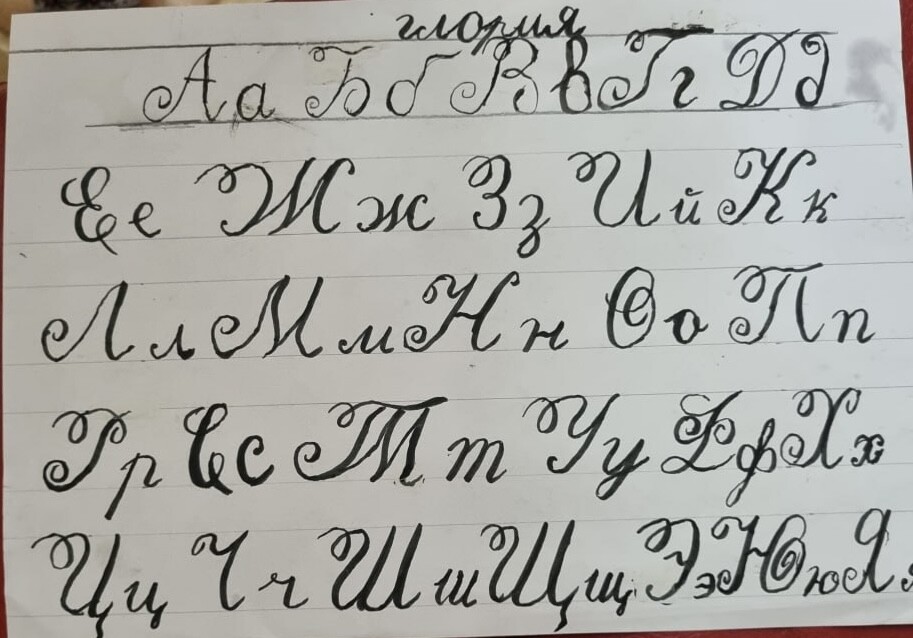 глория
Аа Бб Вв Гг Дд
Ее Жж Зз Ий Кк
Лл Мм Нн Оо Пп
Рр Сс Тт Уу Фф Хх
Цц Чч Шш Щщ Ээ Юю Яя